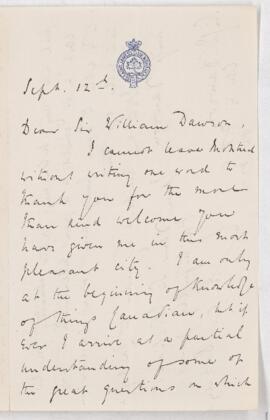 Sept. 12th.
Dear Sir William Dawson,
I cannot leave Montreal
without writing one word to
thank you for the more
than kind welcome you
have given me in this most
pleasant city. I am only
at the beginning of knowledge
of things Canadian, but if
ever I arrive at a partial
understanding of some of
the great questions on which